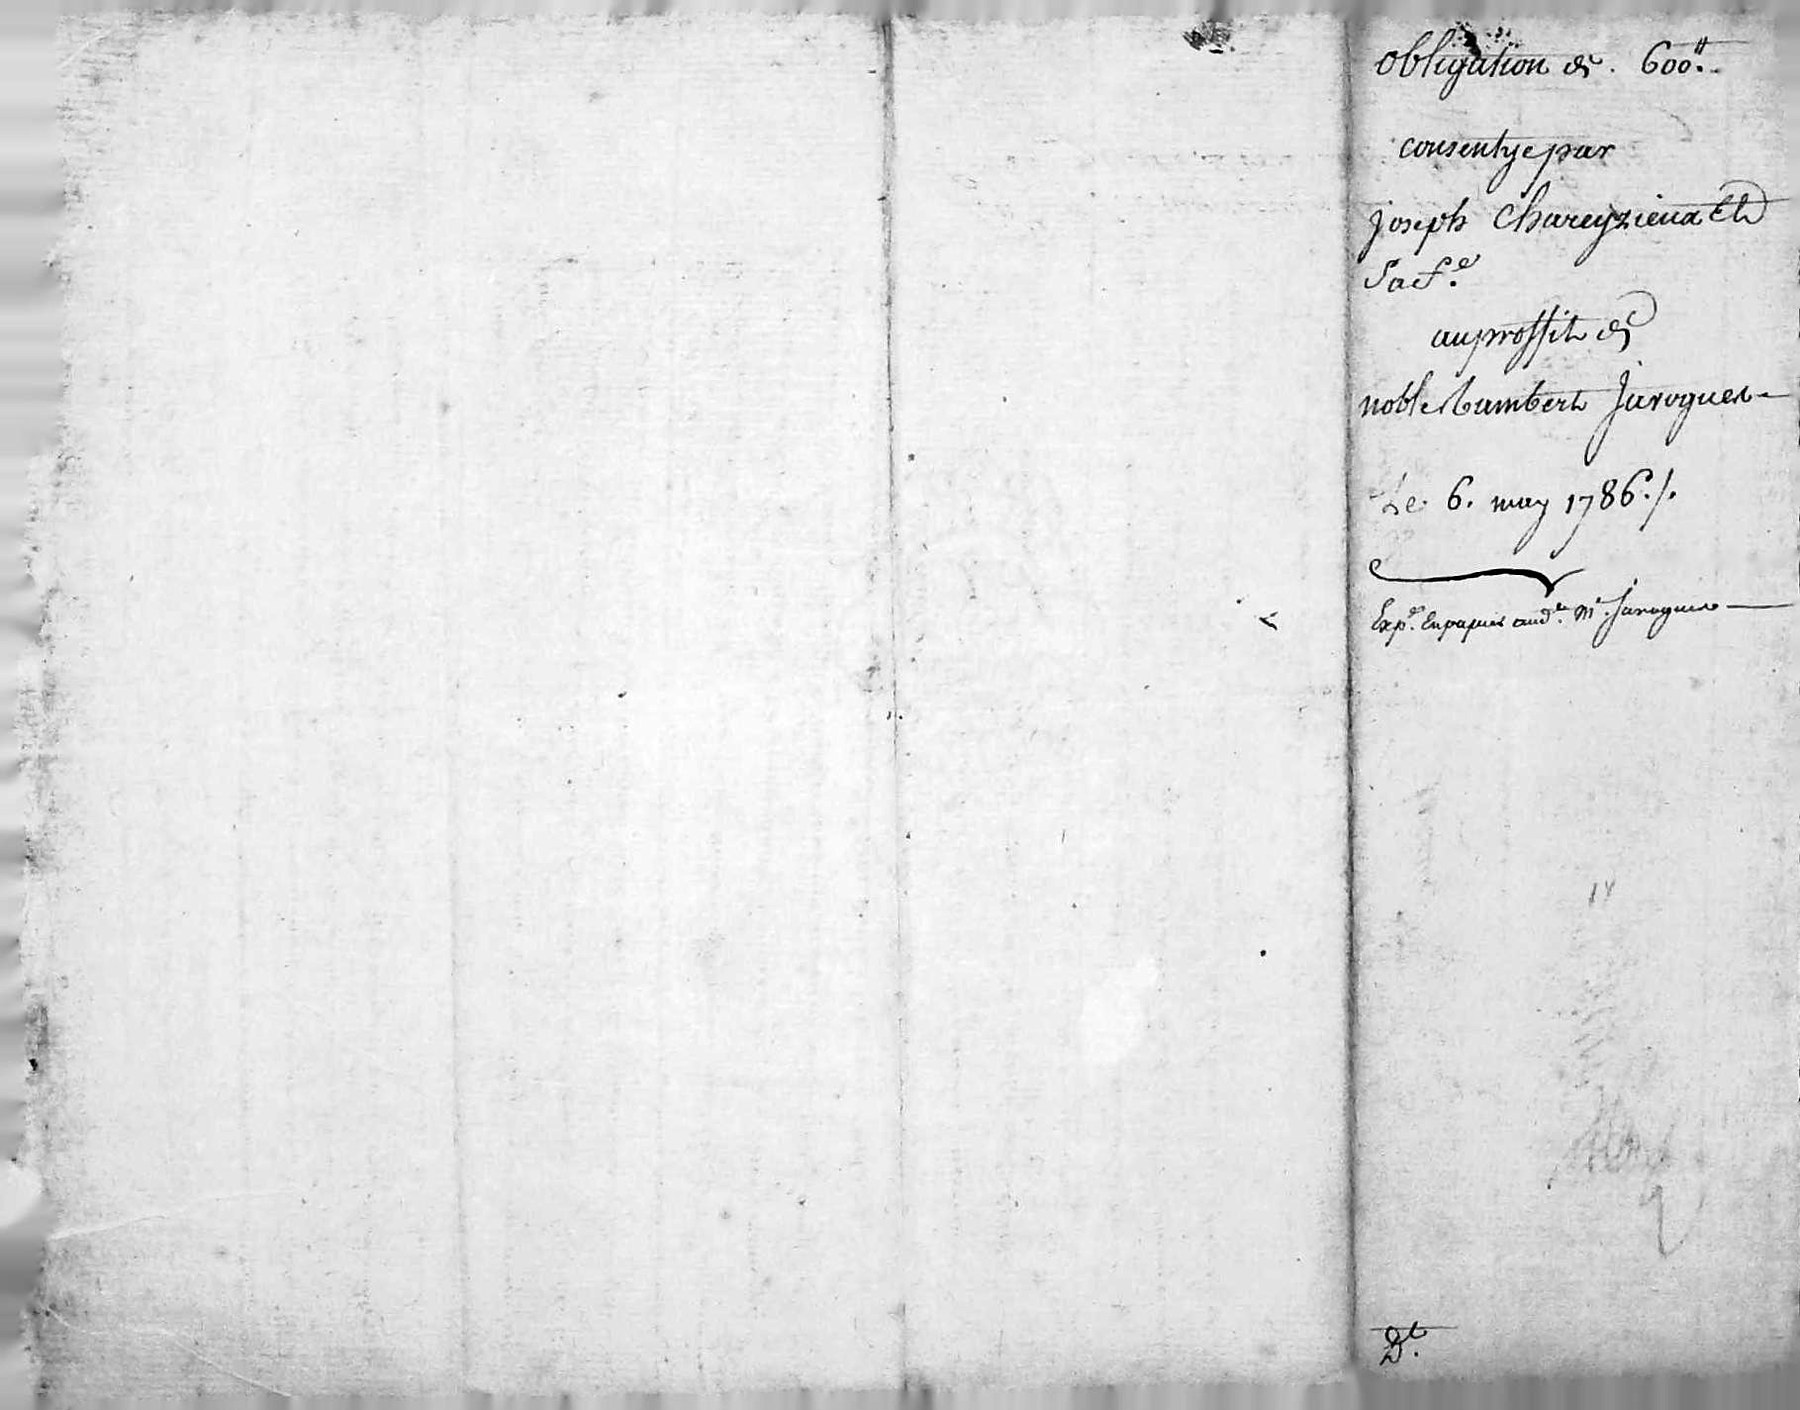 obligation de. 600.ᵗᵗ
consentye par
joseph Chareyzieux Et
sa f.ᵉ
au proffit de
noble Lambert Jarogues
Le 6. may 1786./.
Exp.ᵉᵉ En papier aud.ᵗ Mʳ. Jarogues
Dᵗ.